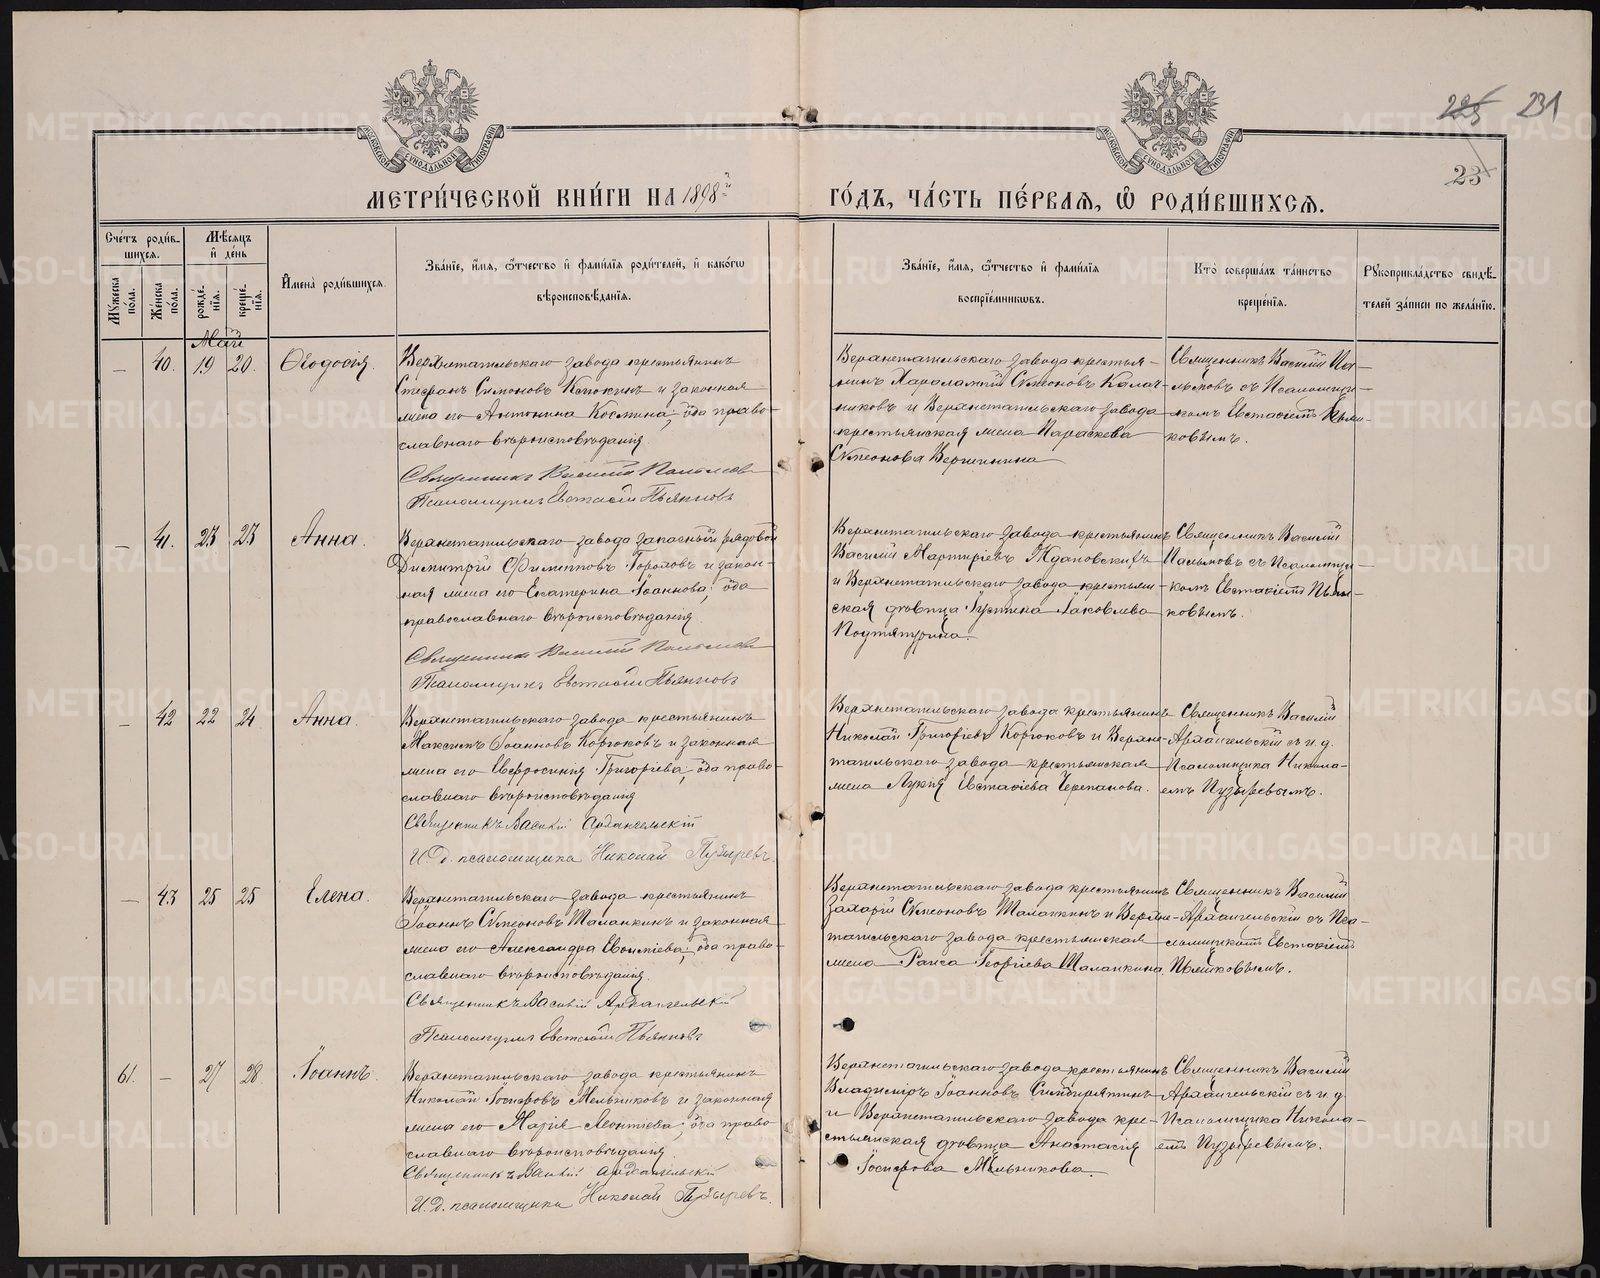 225 231
23
МОСКОВСКОЙ СѴНОДАЛЬНОЙ ТИПОГРАФІИ
МОСКОВСКОЙ СѴНОДАЛЬНОЙ ТИПОГРАФІИ
МЕТРИ́ЧЕСКОЙ КНИ́ГИ НА 1898й ГО́ДЪ, ЧА́СТЬ ПЕ́РВАѦ, Ѡ҆ РОДИ́ВШИХСѦ.
Сче́тъ роди́в-
шихся.
Му́жеска
по́ла.
Же́нска
по́ла.
Мѣ́сяцъ
и҆ де́нь
рожде́-
нїя.
креще́-
нїя.
И҆мена̀ роди́вшихся.
Зва́нїе, и҆́мя, ѻ҆́тчество и҆ фами́лїя роди́телей, и҆ како́гѡ
вѣроисповѣ́данїя.
Зва́нїе, и҆́мя, ѻ҆́тчество и҆ фами́лїя
воспрїе́мникѡвъ.
Кто̀ соверша́лъ та́инство
креще́нїя.
Рꙋкоприкла́дство свидѣ́-
телей за́писи по жела́нїю.
Май
— 40. 19 20. Ѳеодосія.
Верхнетагильскаго завода крестьянинъ
Стефанъ Симоновъ и законная
жена его Антонина Космина, оба право-
славнаго вѣроисповѣданія.
Священникъ Василій Пальмовъ
Псаломщикъ Евстаѳій Пьянковъ
Верхнетагильскаго завода крестья-
нинъ Харалампій Сѵмеоновъ Калач-
никовъ и Верхнетагильскаго завода
крестьянская жена Параскева
Сѵмеонова Вершинина
Священникъ Василій Па-
льмовъ съ Псаломщи-
комъ Евстаѳіемъ Пьян-
ковымъ.
— 41. 23 23 Анна.
Верхнетагильскаго завода запасный рядовой
Димитрій Филипповъ Гороховъ и закон-
ная жена его Екатерина Іоаннова, оба
православнаго вѣроисповѣданія.
Священникъ Василій Пальмовъ
Псаломщикъ Евстаѳій Пьянковъ
Верхнетагильскаго завода крестьянинъ
Василій Мартиріевъ Ждановскихъ
и Верхнетагильскаго завода крестьян-
ская дѣвица Іустина Іаковлева
Подтягурина.
Священникъ Василій
Пальмовъ съ Псаломщи-
комъ Евстаѳіемъ Пьян-
ковымъ.
— 42 22 24 Анна.
Верхнетагильскаго завода крестьянинъ
Максимъ Іоанновъ Корюковъ и законная
жена его Евфросинія Григоріева, оба право-
славнаго вѣроисповѣданія
Священникъ Василій Архангельскій
И. Д. псаломщика Николай Пузыревъ.
Верхнетагильскаго завода крестьянинъ
Николай Григоріевъ Корюковъ и Верхне-
тагильскаго завода крестьянская
жена Лукія Евстаѳіева Черепанова.
Священникъ Василій
Архангельскій съ и. д.
Псаломщика Никола-
емъ Пузыревымъ.
— 43 25 25 Елена.
Верхнетагильскаго завода крестьянинъ
Іоаннъ Сѵмеоновъ Маланкинъ и законная
жена его Александра Евѳиміева, оба право-
славнаго вѣроисповѣданія.
Священникъ Василій Архангельскій
Псаломщикъ Евстаѳій Пьянковъ
Верхнетагильскаго завода крестьянинъ
Захарій Сѵмеоновъ Маланкинъ и Верхне-
тагильскаго завода крестьянская
жена Раиса Георгіева Маланкина.
Священникъ Василій
Архангельскій съ Пса-
ломщикомъ Евстаѳіемъ
Пьянковымъ.
61. — 27 28 Іоаннъ.
Верхнетагильскаго завода крестьянинъ
Николай Іосифовъ Мельниковъ и законная
жена его Марія Леонтіева, оба право-
славнаго вѣроисповѣданія.
Священникъ Василій Архангельскій
И. Д. псаломщика Николай Пузыревъ.
Верхнетагильскаго завода крестьянинъ
Владиміръ Іоанновъ Симбирятинъ
и Верхнетагильскаго завода кре-
стьянская дѣвица Анастасія
Іосифова Мельникова.
Священникъ Василій
Архангельскій съ и. д.
Псаломщика Никола-
емъ Пузыревымъ.
METRIKI.GASO-URAL.RU